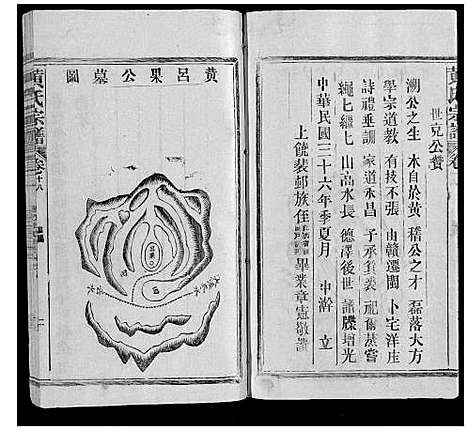 黄氏宗譜
世克公贊
溯公之生 本自於黄 稽公之才 磊落大方
學宗道教 有技不張 由贛遷閩 卜宅洋庄
詩禮垂訓 家道永昌 子承孫裘 祀薦蒸嘗
繩七繼七 山高水長 德澤後世 譜牒增光
中華民國三十六年季夏月 中澣 立
上饒裴邨族侄 畢業章憲敬讚
黄呂果公墓圖
黄氏宗譜